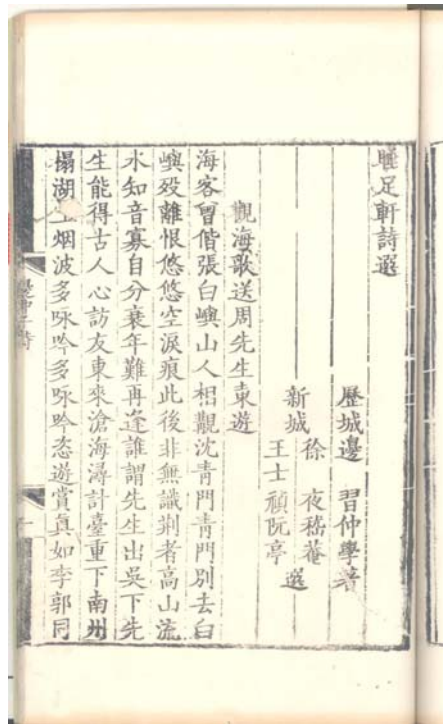 睡足軒詩選
歷城邊 習仲學著
新城 徐 夜嵇菴 王士禎阮亭 選
觀海歌送周先生東遊
海客曾偕張白嶼山人相觀沈青門青門別去白
嶼歿離恨悠悠空淚痕此後非無識荆者高山流
水知音寡自分衰年難再逢誰謂先生出吳下先
生能得古人心訪友東來滄海潯計臺重下南州
榻湖上烟波多咏吟多咏吟恣遊賞真如李郭同
一